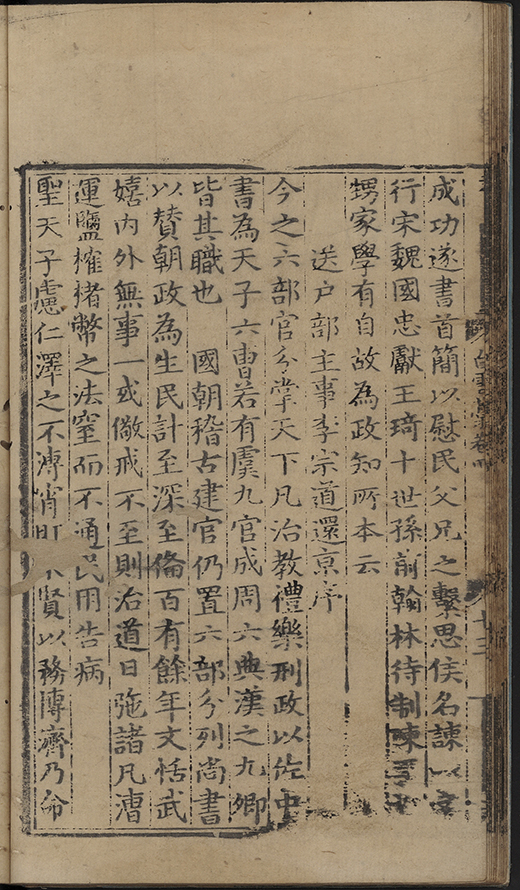 成功遂書首簡以慰民父兄之繫思侯名諫以字
行宋魏國忠獻王琦十世孫前翰林待制諫
甥家學有自故為政知所本云
送户部主事李宗道還京序
今之六部官分掌天下凡治教禮樂刑政以佐中
書為天子六曹若有虞九官成周六典漢之九卿
皆其職也　國朝稽古建官仍置六部分列尚書
以贊朝政為生民計至深至俻百有餘年文恬武
嬉内外無事一或儆戒不至則治道日弛諸凡漕
運鹽榷楮幣之法窒而不通民用告病
聖天子慮仁澤之不溥宵旰 賢以務博濟乃命